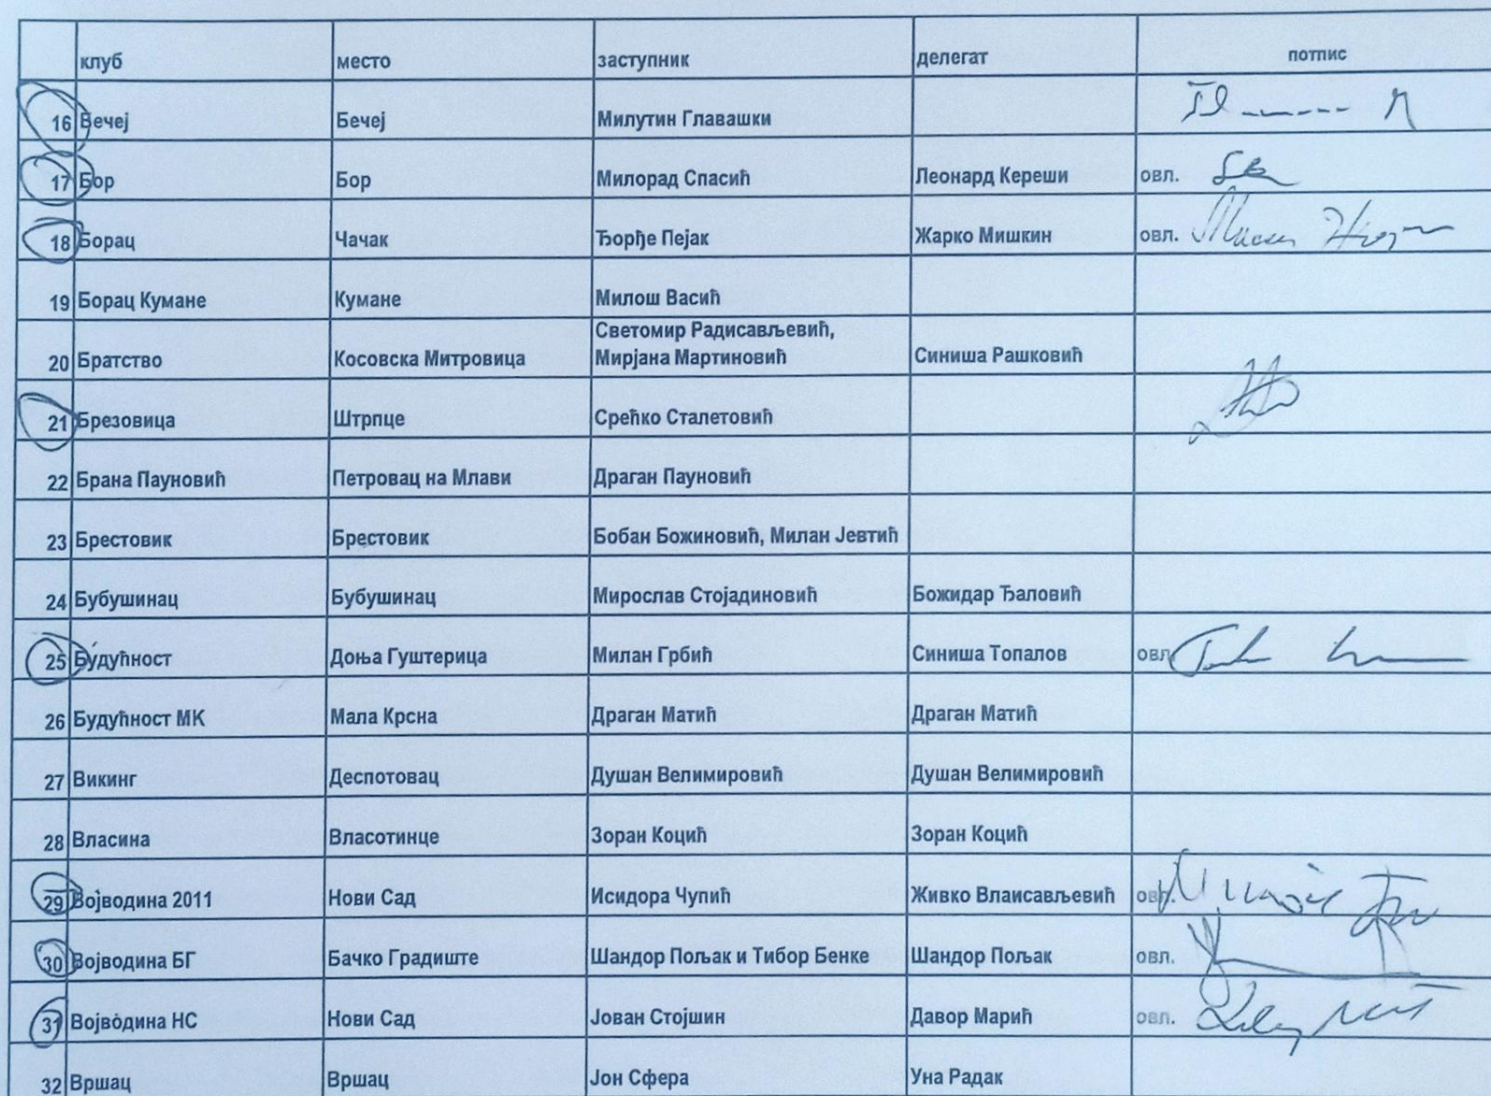 клуб место заступник делегат потпис
16 Бечеј Бечеј Милутин Главашки
17 Бор Бор Милорад Спасић Леонард Кереши овл.
18 Борац Чачак Ђорђе Пејак Жарко Мишкин овл.
19 Борац Кумане Кумане Милош Васић
Светомир Радисављевић,
20 Братство Косовска Митровица Мирјана Мартиновић Синиша Рашковић
21 Брезовица Штрпце Срећко Сталетовић
22 Брана Пауновић Петровац на Млави Драган Пауновић
23 Брестовик Брестовик Бобан Божиновић, Милан Јевтић
24 Бубушинац Бубушинац Мирослав Стојадиновић Божидар Ђаловић
25 Будућност Доња Гуштерица Милан Грбић Синиша Топалов овл.
26 Будућност МК Мала Крсна Драган Матић Драган Матић
27 Викинг Деспотовац Душан Велимировић Душан Велимировић
28 Власина Власотинце Зоран Коцић Зоран Коцић
29 Војводина 2011 Нови Сад Исидора Чупић Живко Влаисављевић овл.
30 Војводина БГ Бачко Градиште Шандор Пољак и Тибор Бенке Шандор Пољак овл.
31 Војводина НС Нови Сад Јован Стојшин Давор Марић овл.
32 Вршац Вршац Јон Сфера Уна Радак